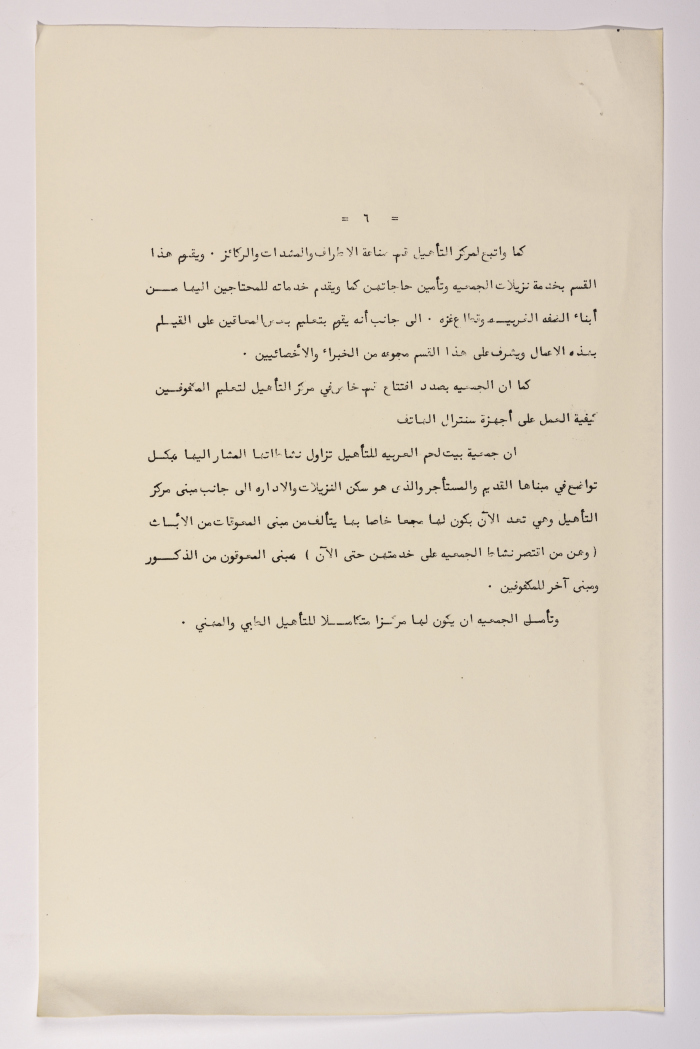 = ٦ =
كما واتبع لمركز التأهيل قسم صناعة الاطراف والمشدات والركائز . ويقوم هذا
القسم بخدمة نزيلات الجمعيه وتأمين حاجاتهن كما ويقدم خدماته للمحتاجين اليها مــن
أبناء الضفه الغربيــه وقطاع غزه . الى جانب أنه يقوم بتعليم بعض المعاقين على القيــام
بهذه الاعمال ويشرف على هذا القسم مجموعه من الخبراء والأخصائيين .
كما ان الجمعيه بصدد افتتاح قسم خاص في مركز التأهيل لتعليم المكفوفــين
كيفية العمل على أجهزة سنترال الهاتف
ان جمعية بيت لحم العربيه للتأهيل تزاول نشاطاتها المشار اليها بكــل
تواضع في مبناها القديم والمستأجر والذى هو سكن النزيلات والاداره الى جانب مبنى مركز
التأهيل وهي تعد الآن يكون لها مجمعا خاصا بها يتألف من مبنى المعوقات من الأنــاث
( وهن من اقتصر نشاط الجمعيه على خدمتهن حتى الآن ) مبنى المعوقون من الذكــور
ومبنى آخر للمكفوفين .
وتأمــل الجمعيه ان يكون لها مركــزا متكامــلا للتأهيل الطبي والمهني .